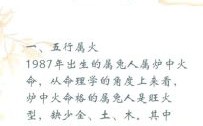 一、五行属火
1987年出生的属兔人属炉中火
命，从命理学的角度上来看，
炉中火命格的属兔人是旺火
型，缺少金、土、木，其中